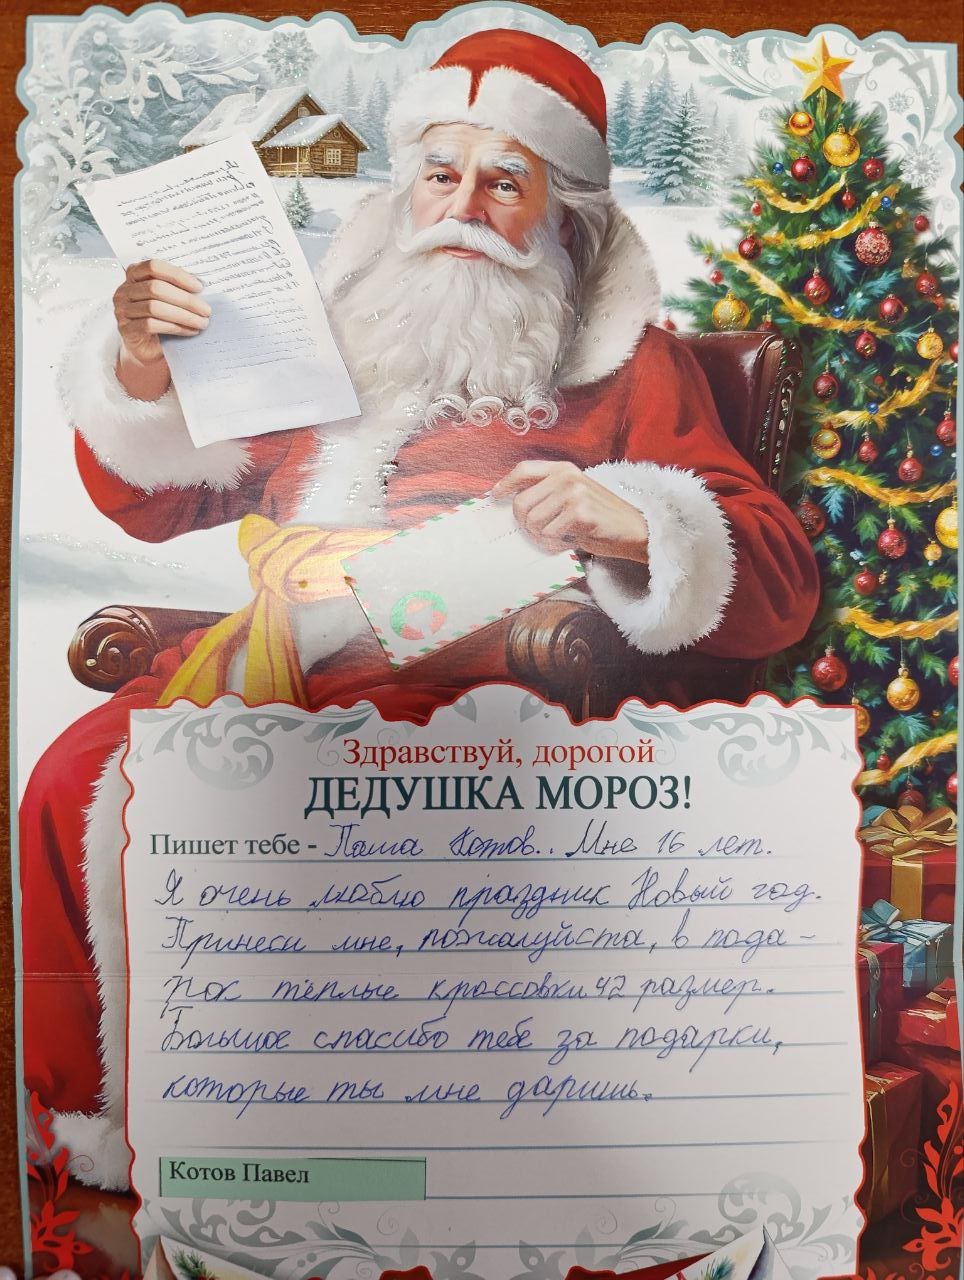 Здравствуй, дорогой
ДЕДУШКА МОРОЗ!
Пишет тебе - Паша Котов.. Мне 16 лет.
Я очень люблю праздник Новый год.
Принеси мне, пожалуйста, в пода-
рок тёплые кроссовки 42 размер.
Большое спасибо тебе за подарки,
которые ты мне даришь.
Котов Павел